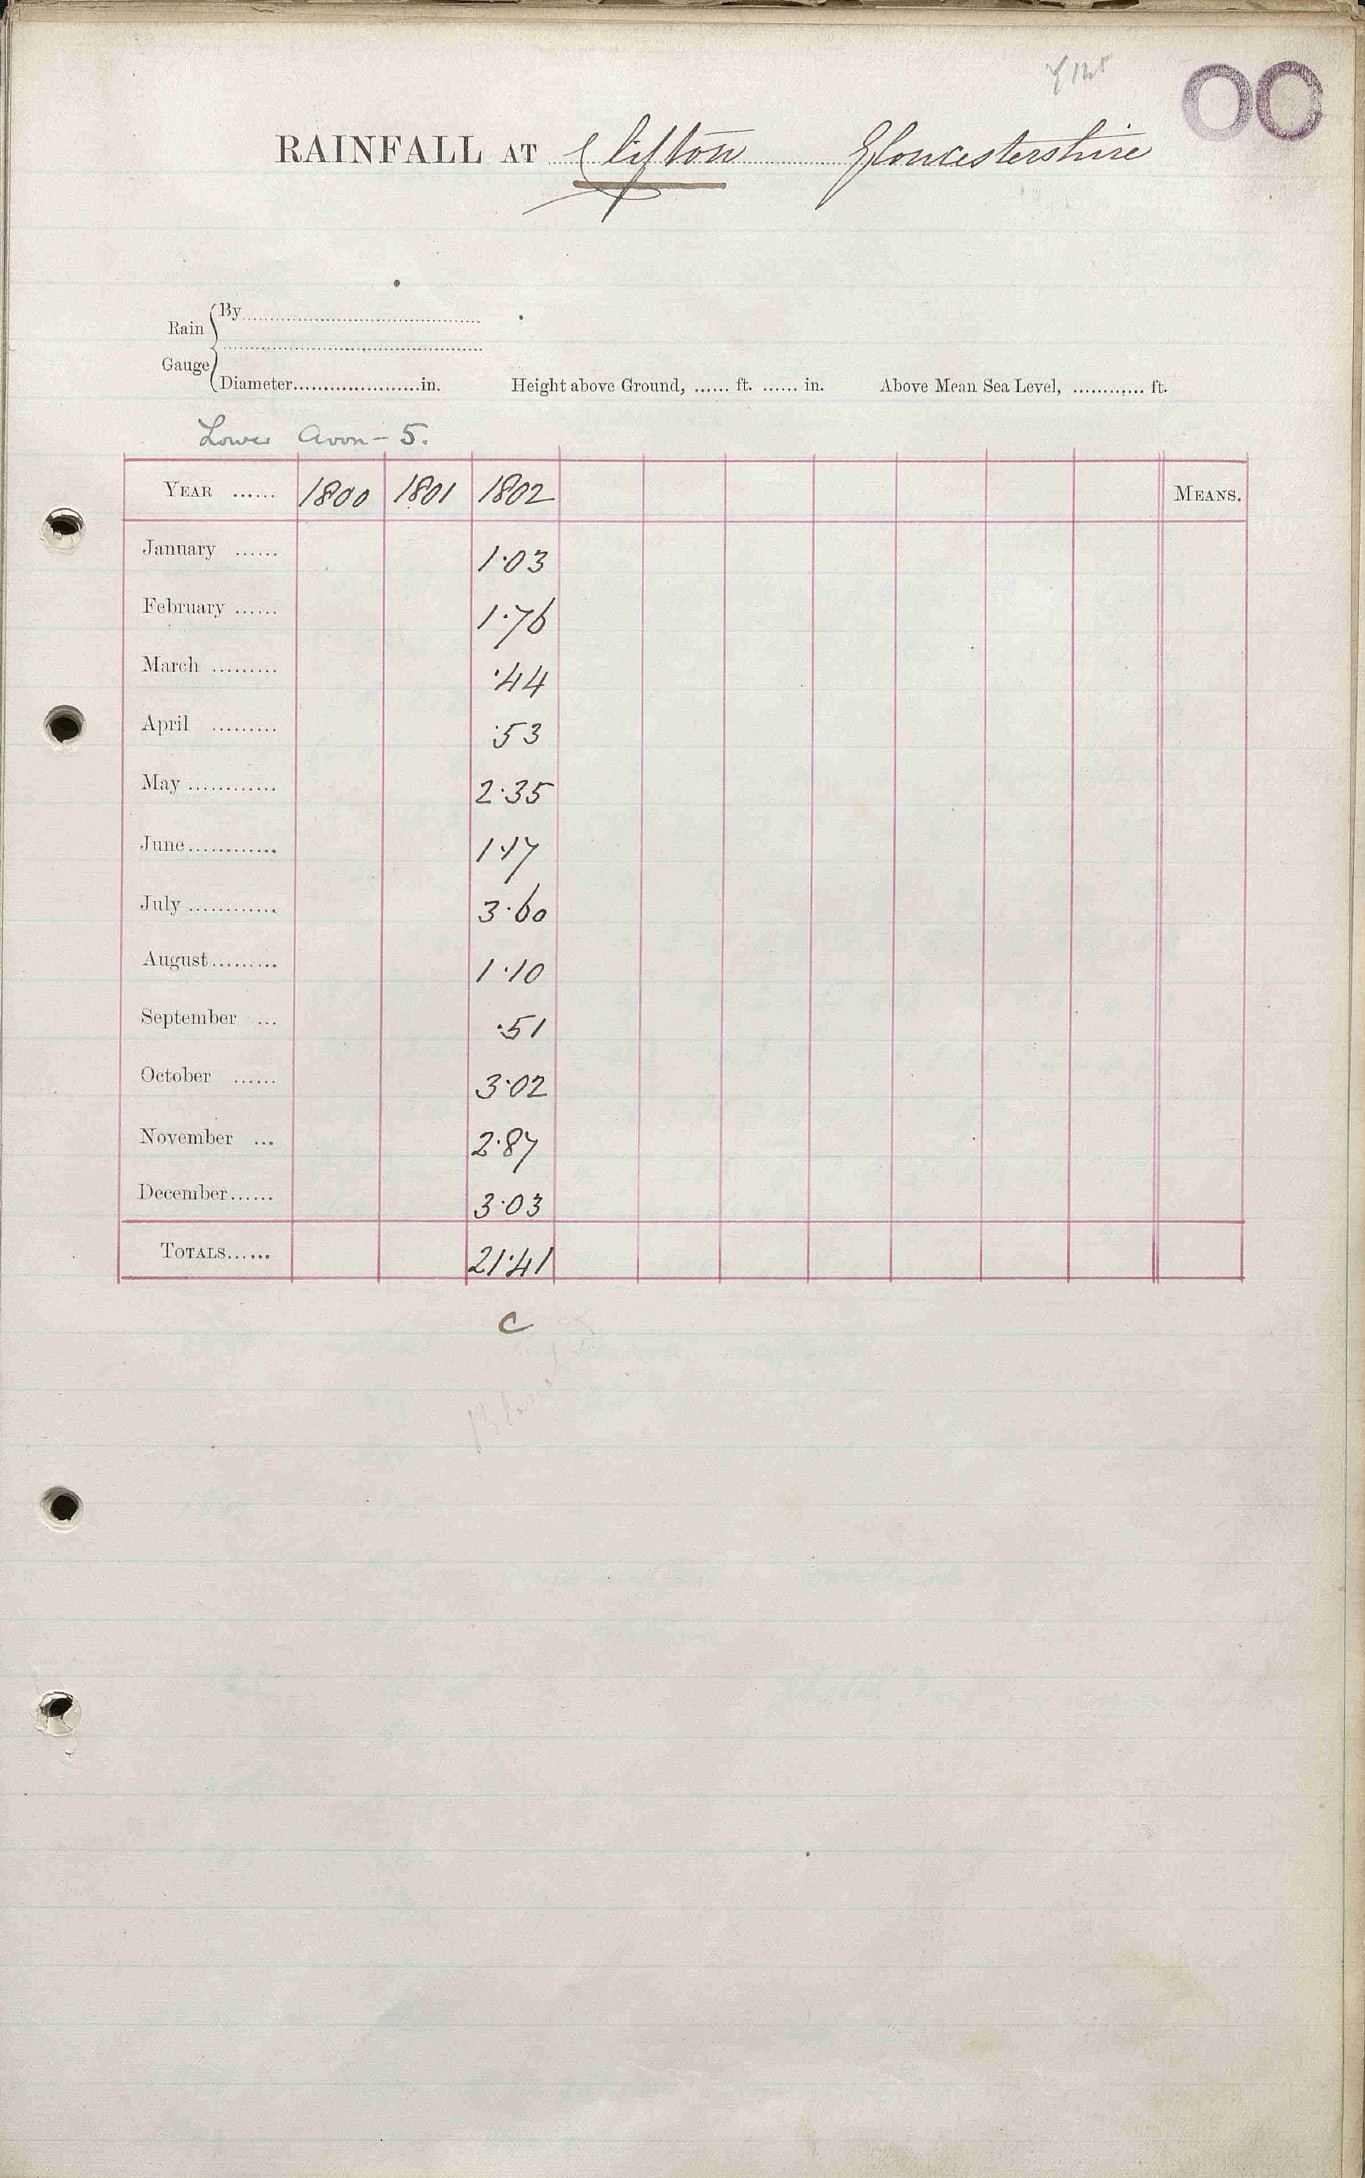 OC
RAINFALL AT Clifton Gloucestershire
Rain Gauge
By
Diameter in. Height above Ground, ...... ft. ...... in. Above Mean Sea Level, ............ ft.
Lower Avon - 5.
YEAR ...... 1800 1801 1802 MEANS.
January ...... 1.03
February ...... 1.76
March ......... .44
April ......... .53
May ............ 2.35
June ............ 1.17
July ............ 3.60
August ......... 1.10
September ... .51
October ...... 3.02
November ... 2.87
December ...... 3.03
TOTALS ...... 21.41
C